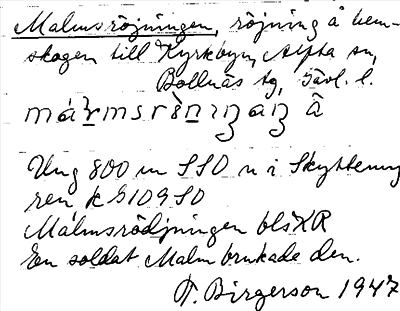 Malmsröjningen, röjning å hem-
skogen till Kyrkbyn, Alfta sn,
Bollnäs tg, Gävl. l.
å
Ung 800 m SSO n i Skyttemy
ren k G109 SO
Malmsrödjningen bls XR
En soldat Malm brukade den.
T. Birgerson 1947